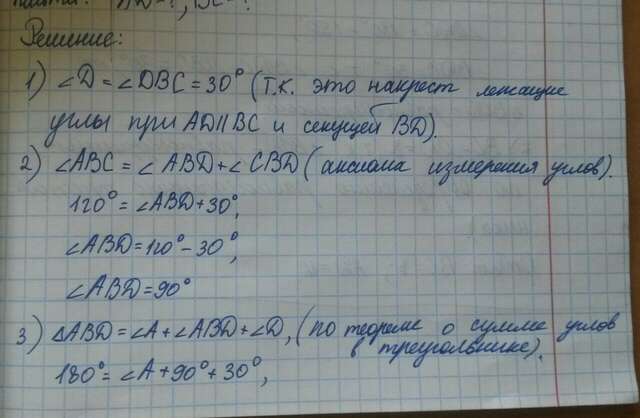 AD-?, BC-?
Решение:
1) ∠D = ∠DBC = 30° (т.к. это накрест лежащие
углы при AD∥BC и секущей BD).
2) ∠ABC = ∠ABD + ∠CBD (аксиома измерения углов).
120° = ∠ABD + 30°,
∠ABD = 120° - 30°,
∠ABD = 90°
3) △ABD = ∠A + ∠ABD + ∠D, (по теореме о сумме углов
в треугольнике).
180° = ∠A + 90° + 30°,